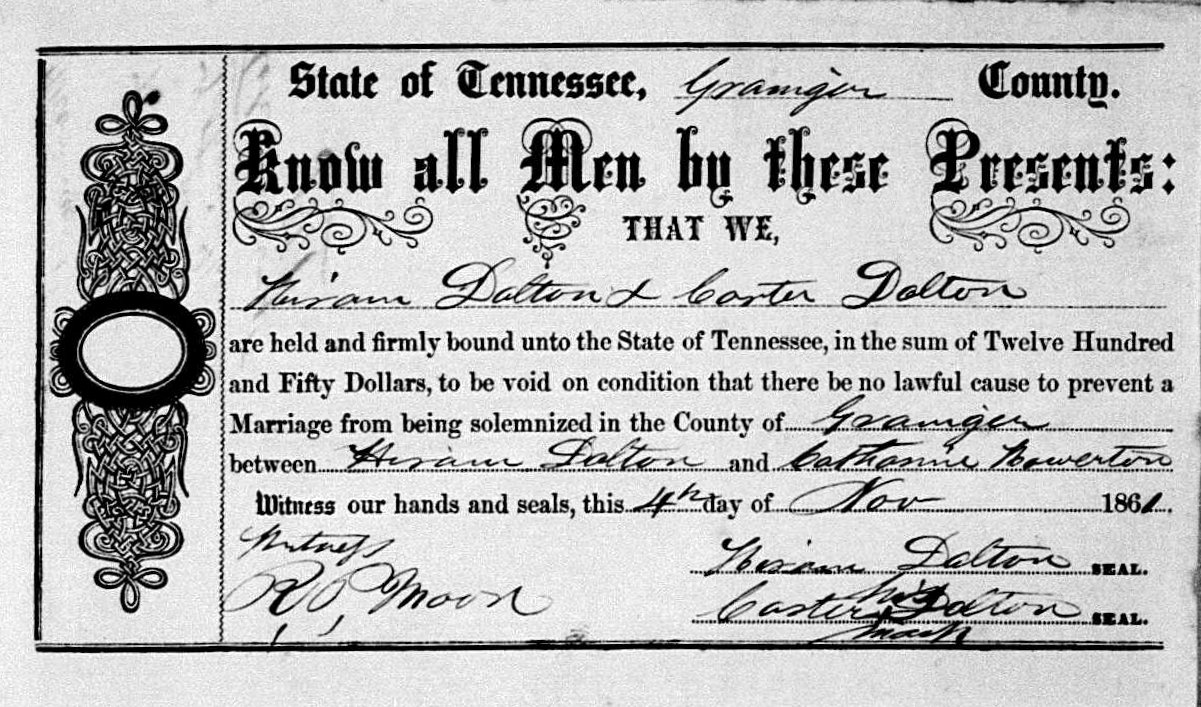 State of Tennessee, Grainger County.
Know all Men by these Presents:
THAT WE,
Hiram Dalton & Carter Dalton
are held and firmly bound unto the State of Tennessee, in the sum of Twelve Hundred
and Fifty Dollars, to be void on condition that there be no lawful cause to prevent a
Marriage from being solemnized in the County of Grainger
between Hiram Dalton and Catharine Howerton
Witness our hands and seals, this 4th day of Nov 1861.
Witness
Hiram Dalton SEAL.
R P Moore
his
Carter Dalton SEAL.
mark